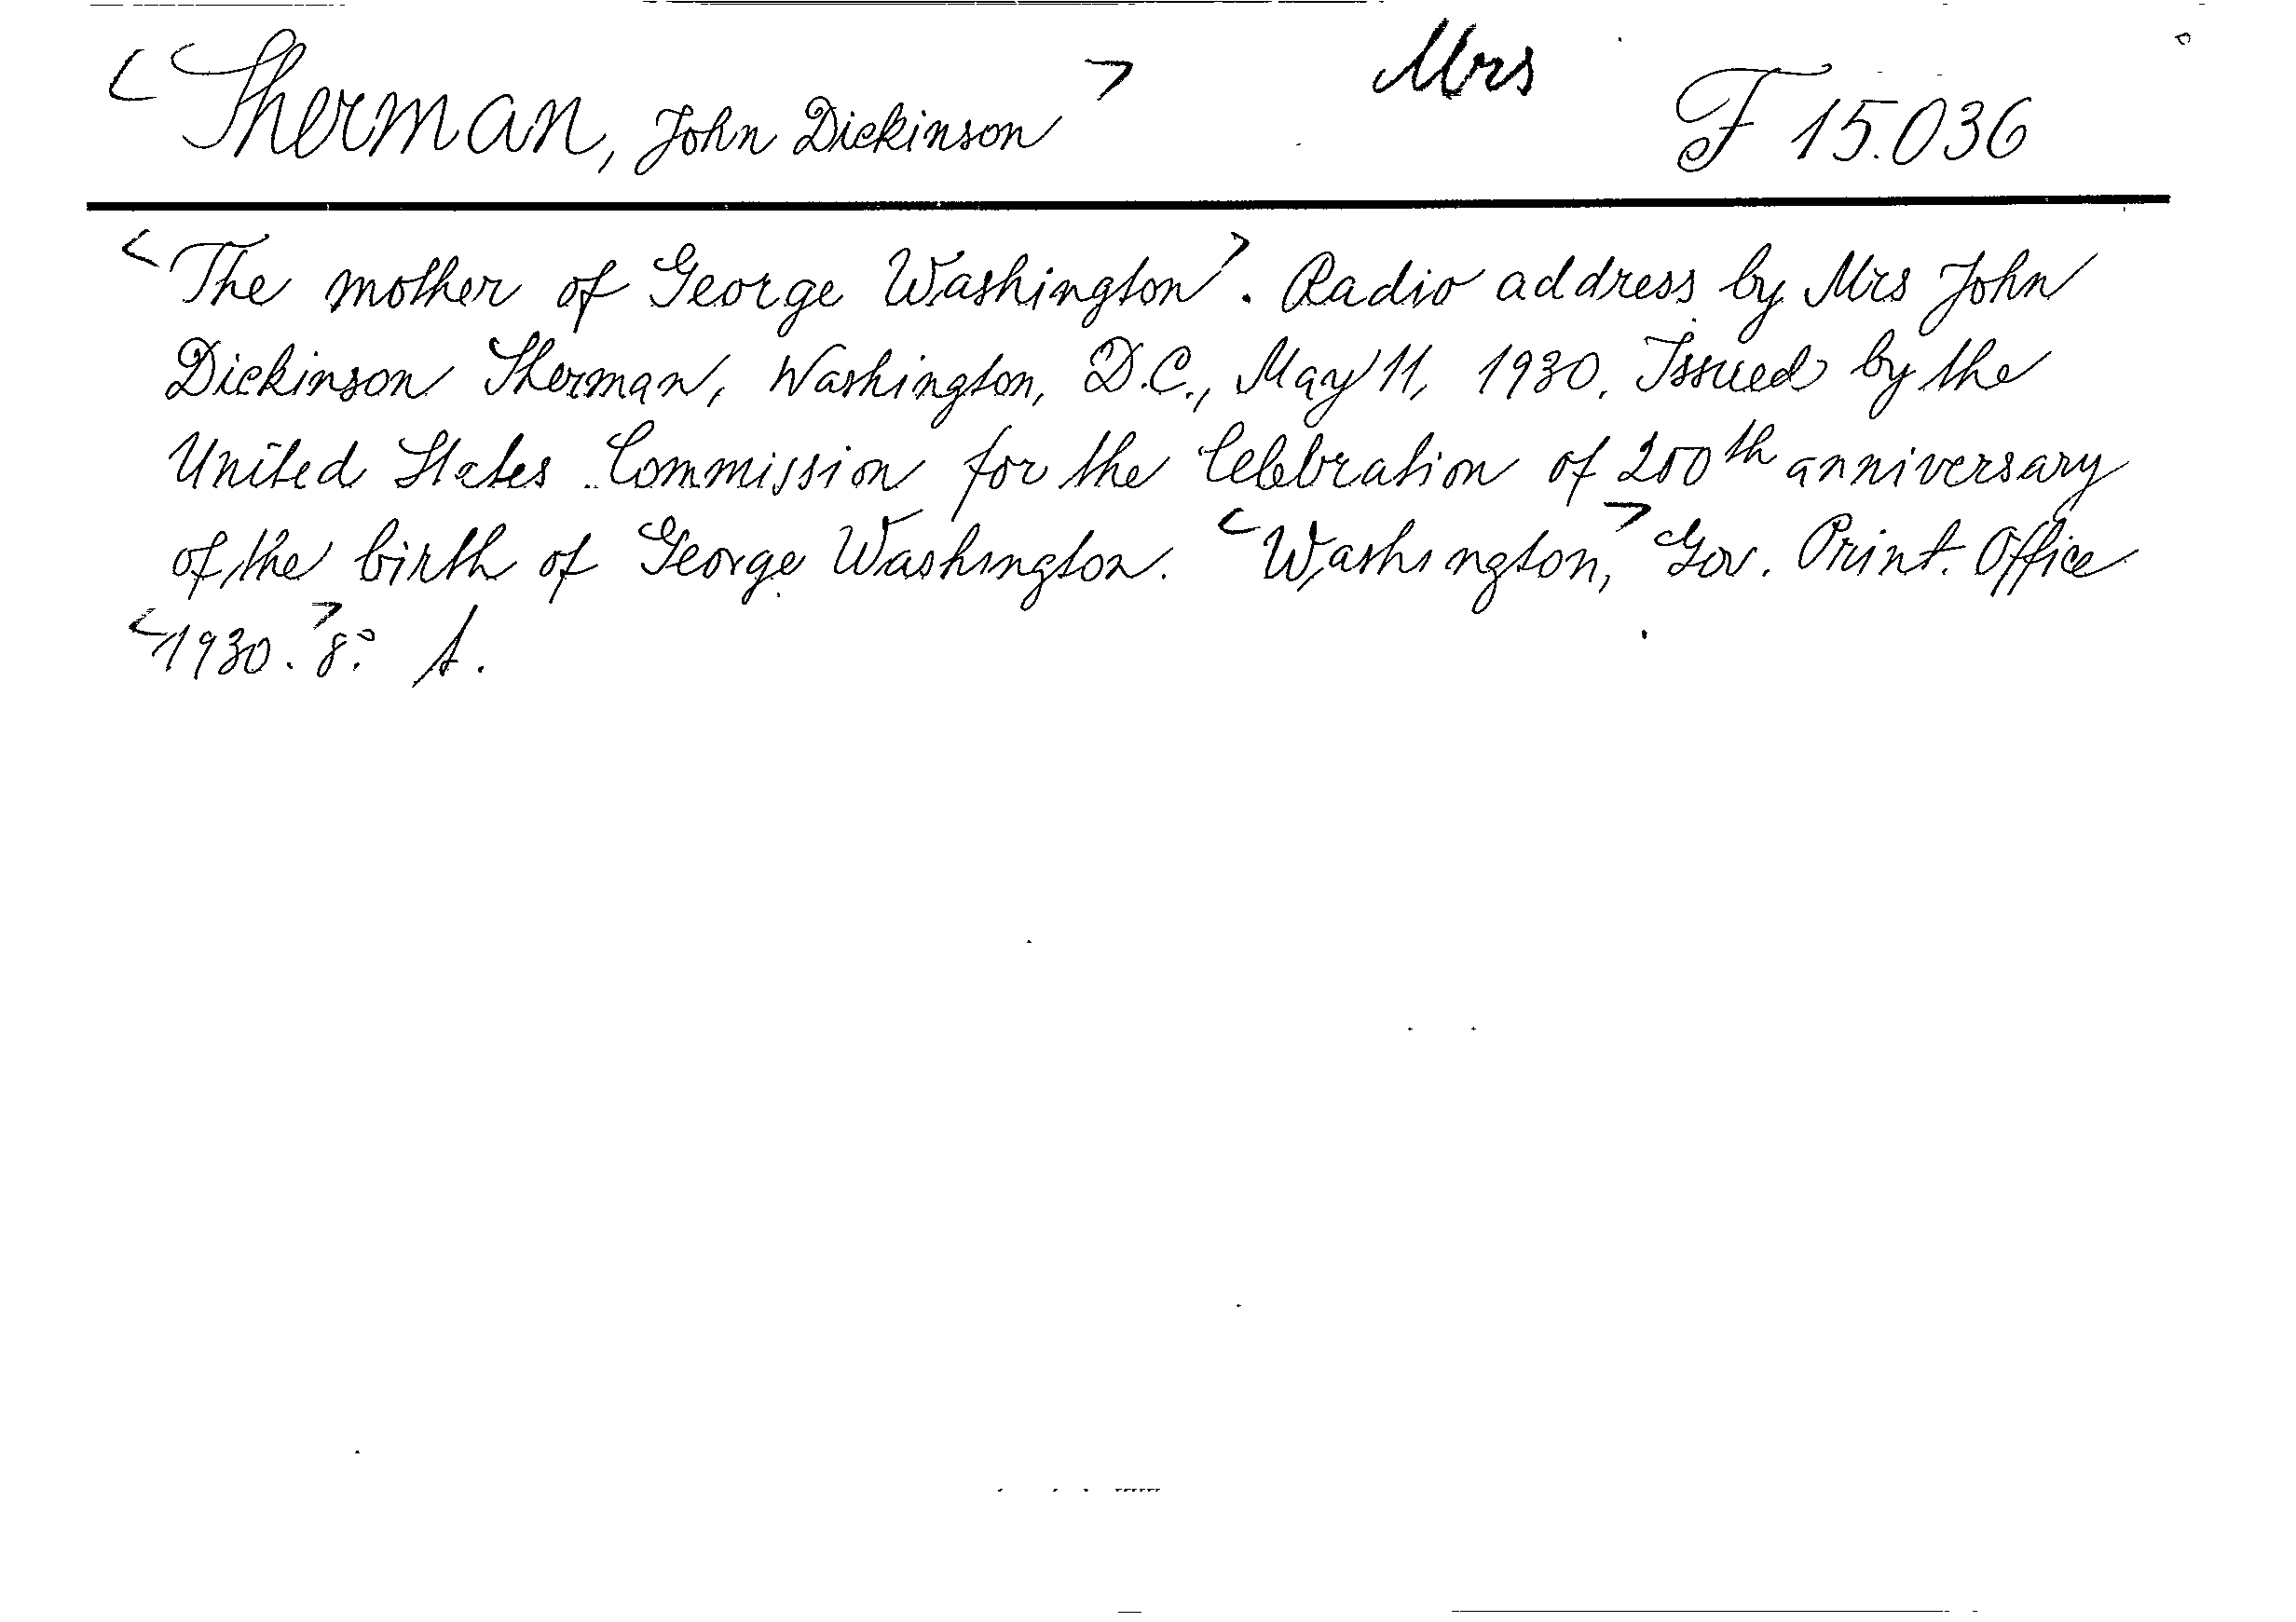 <Sherman, John Dickinson> Mrs F 15.036
<The mother of George Washington>. Radio address by Mrs John
Dickinson Sherman, Washington, D.C., May 11, 1930. Issued by the
United States Commission for the Celebration of 200th anniversary
of the birth of George Washington. <Washington,> Gov. Print. Office
<1930.> 8°.